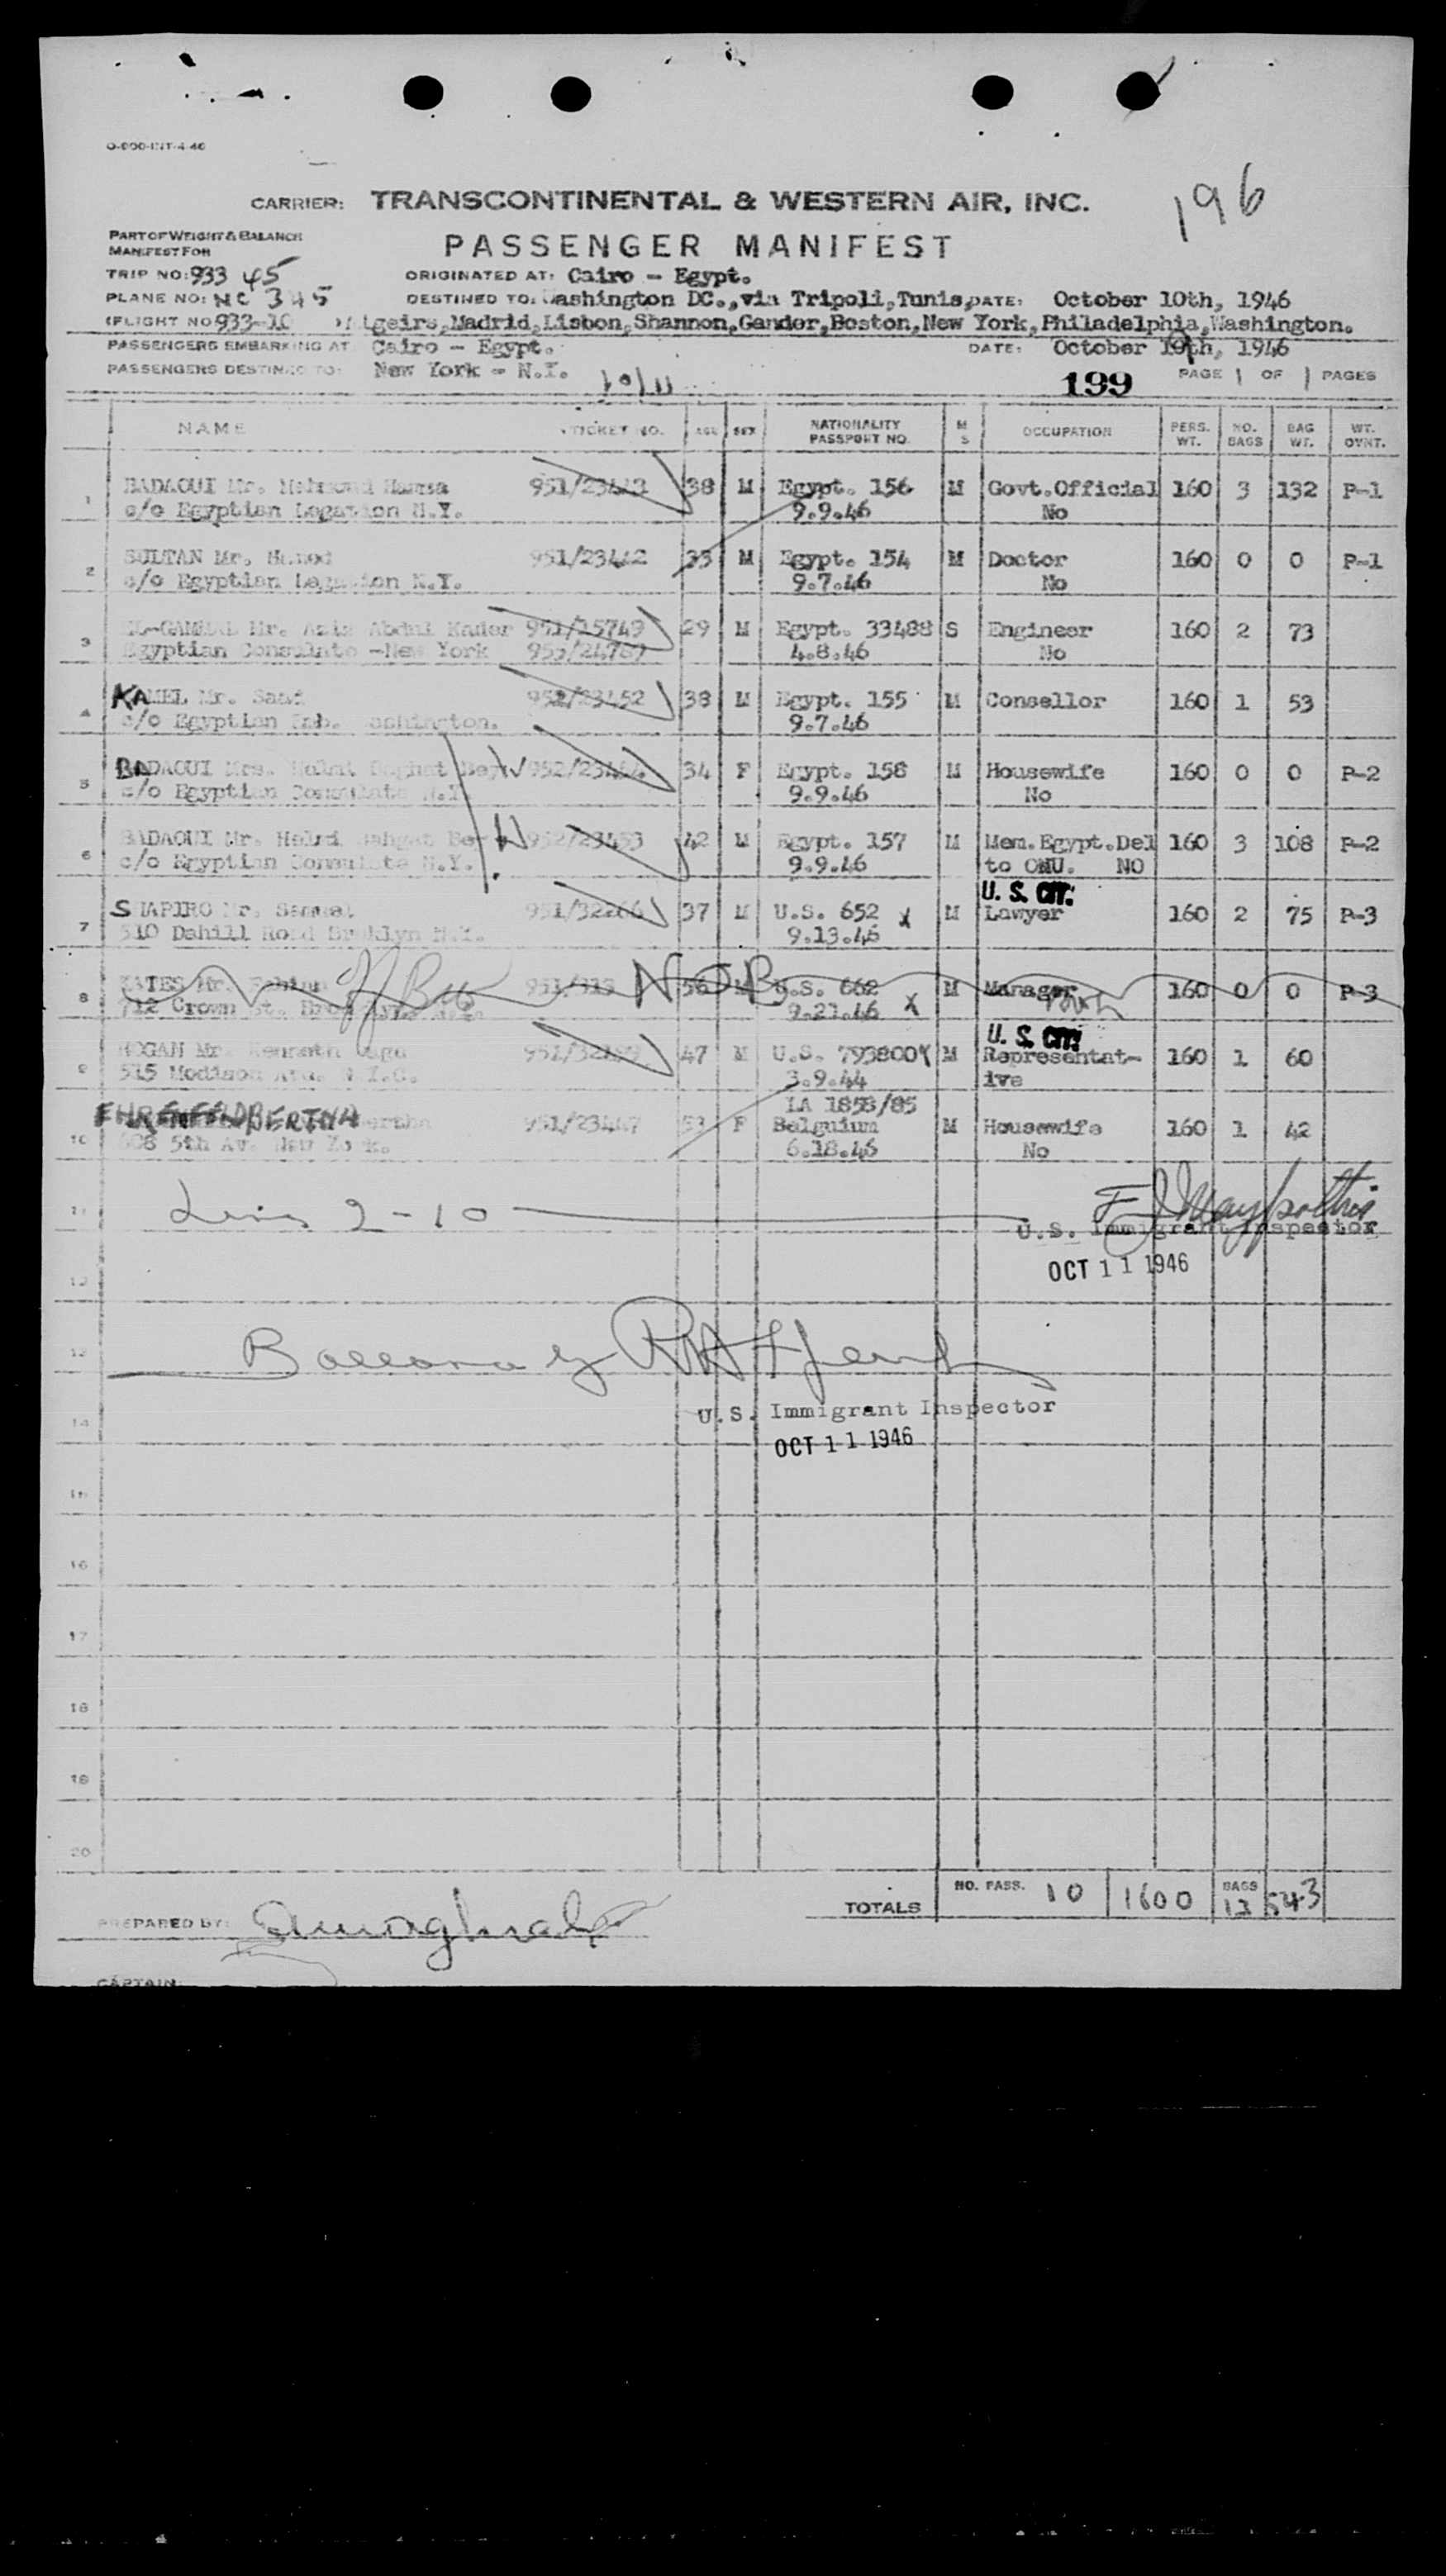 O-900-INT-4-46
196
CARRIER: TRANSCONTINENTAL & WESTERN AIR, INC.
PART OF WEIGHT & BALANCE
MANIFEST FOR
PASSENGER MANIFEST
TRIP NO: 933 45 ORIGINATED AT: Cairo - Egypt.
PLANE NO: NC 345 DESTINED TO: Washington DC., via Tripoli, Tunis, DATE: October 10th, 1946
(FLIGHT NO 933-10 Algeirs, Madrid, Lisbon, Shannon, Gander, Boston, New York, Philadelphia, Washington.
PASSENGERS EMBARKING AT Cairo - Egypt. DATE: October 10th, 1946
PASSENGERS DESTINED TO: New York - N.Y. 10/11 199 PAGE 1 OF 1 PAGES
NAME TICKET NO. AGE SEX NATIONALITY PASSPORT NO. M S OCCUPATION PERS. WT. NO. BAGS BAG WT. WT. OVNT.
1 BADAOUI Mr. Mahmoud Hamsa 951/23443 38 M Egypt. 156 M Govt.Official 160 3 132 P-1
c/o Egyptian Legation N.Y. 9.9.46 No
2 SULTAN Mr. 951/23442 33 M Egypt. 154 M Doctor 160 0 0 P-1
c/o Egyptian Legation N.Y. 9.7.46 No
3 EL-GAMMAL Mr. Aziz Abdul Kader 951/15749 29 M Egypt. 33488 S Engineer 160 2 73
Egyptian Consulate -New York 4.8.46 No
4 KAMEL Mr. Saad 952/23452 38 M Egypt. 155 M Consellor 160 1 53
c/o Egyptian Emb. Washington. 9.7.46
5 BADAOUI Mrs. Helmi Bey 34 F Egypt. 158 M Housewife 160 0 0 P-2
c/o Egyptian Consulate N.Y. 9.9.46 No
6 BADAOUI Mr. Helmi Bahgat Bey 952/23453 42 M Egypt. 157 M Mem.Egypt.Del 160 3 108 P-2
c/o Egyptian Consulate N.Y. 9.9.46 to ONU. NO
U. S. CIT.
7 SHAPIRO Mr. Samuel 951/32266 37 M U.S. 652 x M Lawyer 160 2 75 P-3
510 Dahill Road Broklyn N.Y. 9.13.46
8 KATES Mr. Fabian 951/313 NOB 56 M U.S. 662 M Manager 160 0 0 P-3
712 Crown St. 9.21.46 x
U. S. CIT.
9 HOGAN Mr. Kenneth 47 M U.S. 793800 x M Representat- 160 1 60
515 Modison Ave. N.Y.C. 3.9.44 ive
IA 1858/85
10 EHRENFELD BERTHA 951/23447 53 F Belguium M Housewife 160 1 42
608 5th Av. New York. 6.18.46 No
11 2-10
U.S. Immigrant Inspector
OCT 11 1946
12
13
14 U.S. Immigrant Inspector
OCT 11 1946
15
16
17
18
19
20
TOTALS NO. PASS. 10 1600 BAGS 13 543
PREPARED BY:
CAPTAIN: